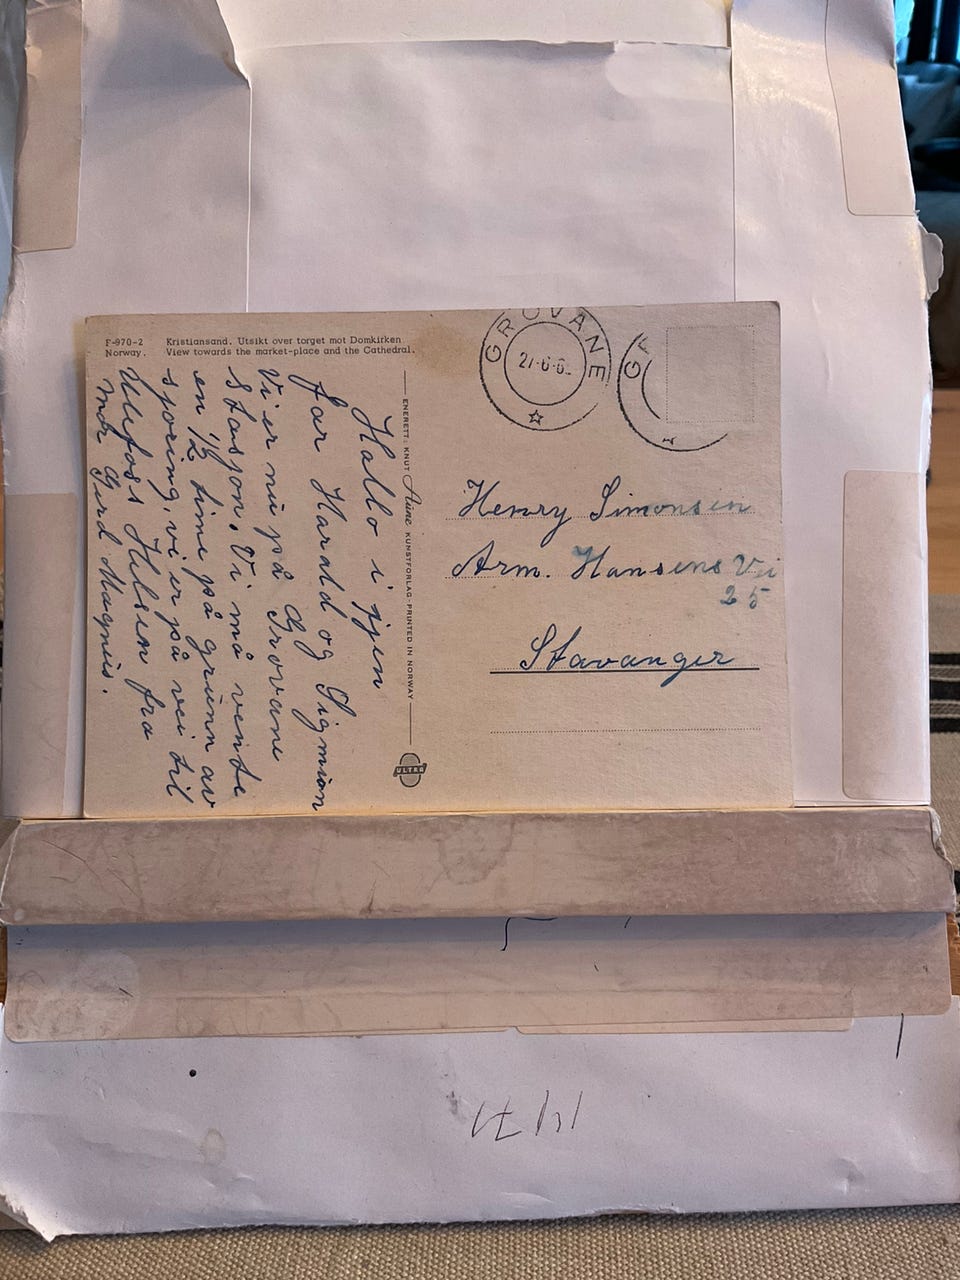 F-970-2 Kristiansand. Utsikt over torget mot Domkirken
Norway. View towards the market-place and the Cathedral.
Hallo i jen
far Harald og Sigmion
Vi er nu på Grovane
Stasjon. Vi må vente
en 1/2 time på grunn av
sporing, vi er på vei til
Ulefoss Hilsen fra
mor Gurd Magnus.
ENERETT: KNUT Aune KUNSTFORLAG - PRINTED IN NORWAY
ULTRA
GROVANE
27-6-6
GR
Henry Simonsen
Arm. Hansens Vei
25
Stavanger